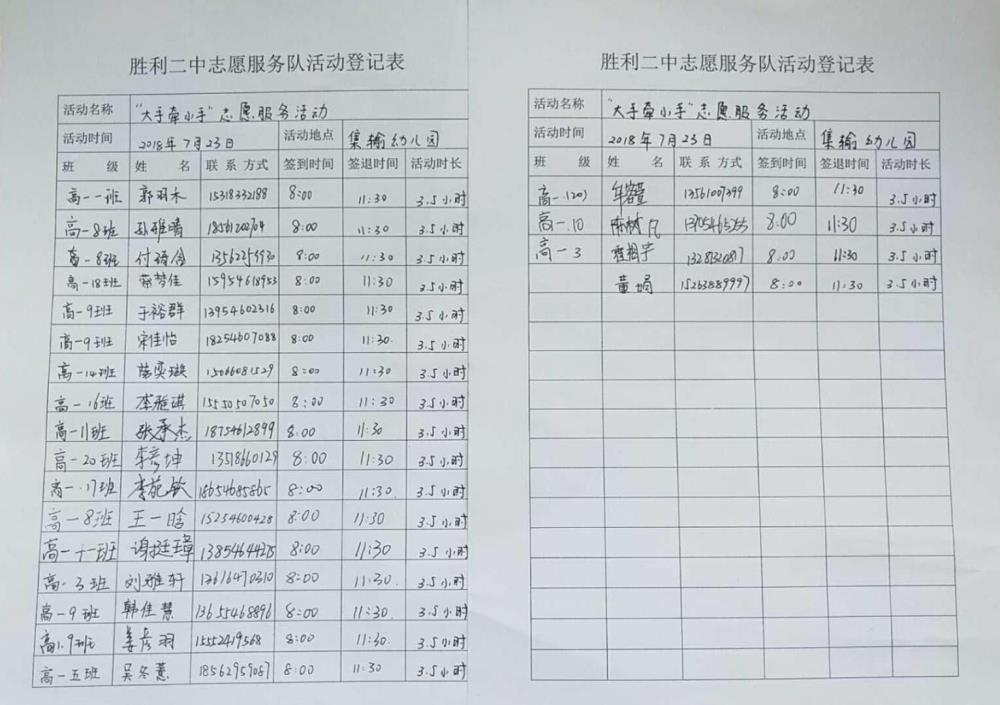 胜利二中志愿服务队活动登记表
活动名称 "大手牵小手"志愿服务活动
活动时间 2018年7月23日 活动地点 集输幼儿园
班 级 姓 名 联系方式 签到时间 签退时间 活动时长
高一一班 郭羽木 15318332188 8:00 11:30 3.5小时
高一8班 孙雅晴 18561202704 8:00 11:30 3.5小时
高一8班 13562259930 8:00 11:30 3.5小时
高一18班 蔡梦佳 15954618953 8:00 11:30 3.5小时
高一9班 于裕群 13954602316 8:00 11:30 3.5小时
高一9班 宋佳怡 18254607088 8:00 11:30 3.5小时
高一14班 15066081529 8:00 11:30 3.5小时
高一16班 李雅琪 15550507050 8:00 11:30 3.5小时
高一11班 张承杰 18754612899 8:00 11:30 3.5小时
高一20班 李彦坤 13518660129 8:00 11:30 3.5小时
高一.17班 18654685865 8:00 11:30 3.5小时
高一8班 王一晗 15254600428 8:00 11:30 3.5小时
高一十一班 谢廷璋 13854644275 8:00 11:30 3.5小时
高一3班 刘雅轩 13616470310 8:00 11:30 3.5小时
高一9班 韩佳慧 13655468896 8:00 11:30 3.5小时
高1.9班 姜彦羽 15552419568 8:00 11:30 3.5小时
高一五班 吴冬薏 18562959087 8:00 11:30 3.5小时
胜利二中志愿服务队活动登记表
活动名称 "大手牵小手"志愿服务活动
活动时间 2018年7月23日 活动地点 集输幼儿园
班 级 姓 名 联系方式 签到时间 签退时间 活动时长
高一.(20) 13561007399 8:00 11:30 3.5小时
高一.10 8:00 11:30 3.5小时
高一3 8:00 11:30 3.5小时
董娟 15263889997 8:00 11:30 3.5小时